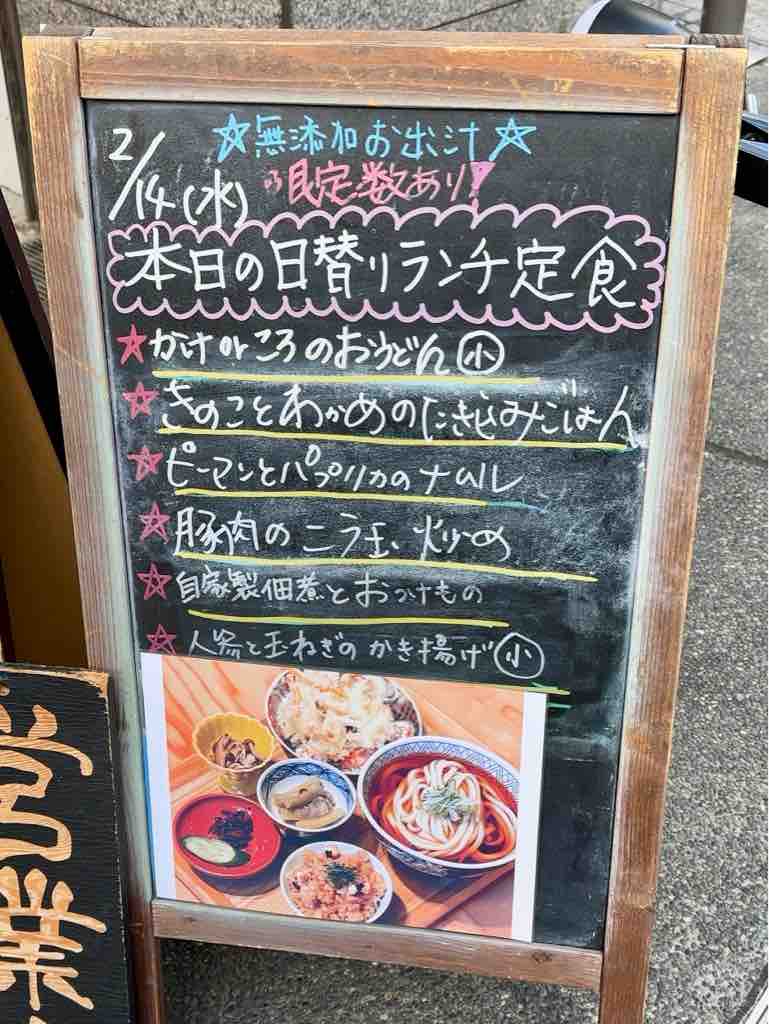 ☆無添加お出汁☆
2/14(水)
限定数あり!
本日の日替りランチ定食
☆かけorころのおうどん㊙小
☆きのことわかめのたき込みごはん
☆ピーマンとパプリカのナムル
☆豚肉のニラ玉炒め
☆自家製佃煮とおつけもの
☆人参と玉ねぎのかき揚げ小
営業